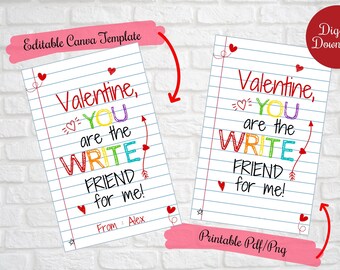 Editable Canva Template
Valentine,
YOU
are the
WRITE
FRIEND
for me!
From : Alex
Valentine,
YOU
are the
WRITE
FRIEND
for me!
Printable Pdf/Png